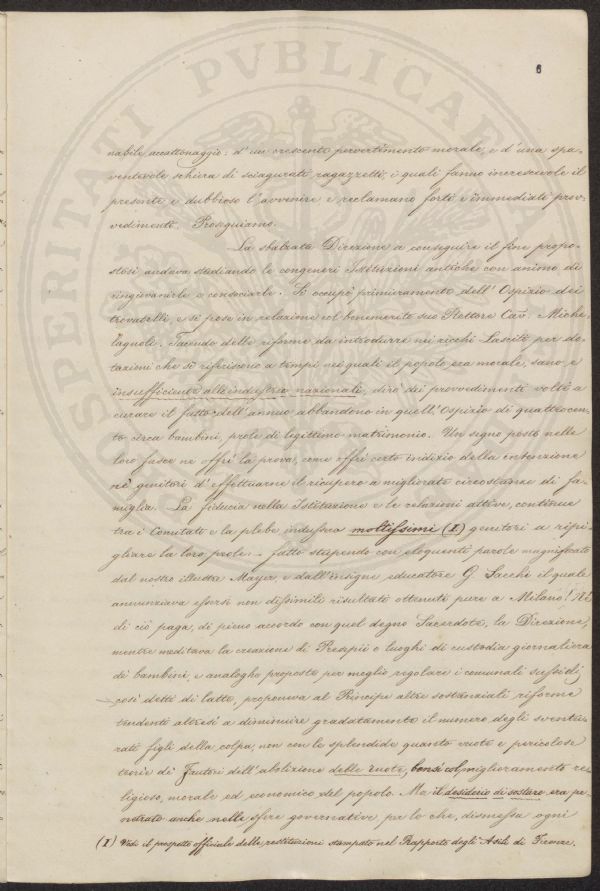 6
nabile accattonaggio: d'un crescente pervertimento morale, e d'una spa-
ventevole schiera di sciagurati ragazzetti, i quali fanno increscevole il
presente e dubbioso l'avvenire, e reclamano forti e immediati prov-
vedimenti. Proseguiamo.
La sbalzata Direzione a conseguire il fine propo-
stosi andava studiando le congeneri Istituzioni antiche con animo di
ringiovanirle e consociarle. Si occupò primieramente dell'Ospizio dei
trovatelli, e si pose in relazione col benemerito suo Rettore Cav. Miche-
lagnoli. Tacendo delle riforme da introdurre nei ricchi Lasciti per do-
tazioni che si riferiscono a tempi nei quali il popolo era morale, sano, e
insufficiente alle industrie nazionali, dirò dei provvedimenti volti a
curare il fatto dell'annuo abbandono in quell'Ospizio di quattrocen-
to circa bambini, prole di legittimo matrimonio. Un segno posto nelle
loro fasce ne offrì la prova, come offrì certo indizio della intenzione
ne' genitori d'effettuarne il ricupero a migliorate circostanze di fa-
miglia. La fiducia nella Istituzione e le relazioni attive, continue
tra i Comitati e la plebe indussero moltissimi (I) genitori a ripi-
gliare la loro prole – fatto stupendo con eloquenti parole magnificato
dal nostro illustre Mayer, e dall'insigne educatore G. Sacchi il quale
annunziava essersi non dissimili risultati ottenuti pure a Milano! Nè
di ciò paga, di pieno accordo con quel degno Sacerdote, la Direzione,
mentre meditava la creazione di Presepii o luoghi di custodia giornaliera
di bambini, e analoghe proposte per meglio regolare i comunali sussidj
così detti di latte, proponeva al Principe altre sostanziali riforme
tendenti altresì a diminuire gradatamente il numero degli sventu-
rati figli della colpa, non con le splendide quanto vuote e pericolose
teorie de' Fautori dell'abolizione delle ruote, bensì col miglioramento re-
ligioso, morale ed economico del popolo. Ma il desiderio di sostare era pe-
netrato anche nelle sfere governative per lo che, dismessa ogni
(I) Vedi il prospetto officiale delle restituzioni stampato nel Rapporto degli Asili di Firenze.
PROSPERITATI PVBLICAE